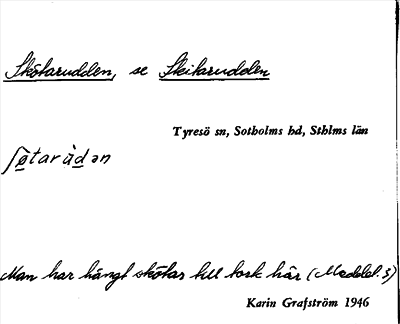 Skötarudden, se Skitarudden
Tyresö sn, Sotholms hd, Sthlms län
ʃø̱tarùḏən
Man har hängt skötar till tork här (Meddel. 3)
Karin Grafström 1946